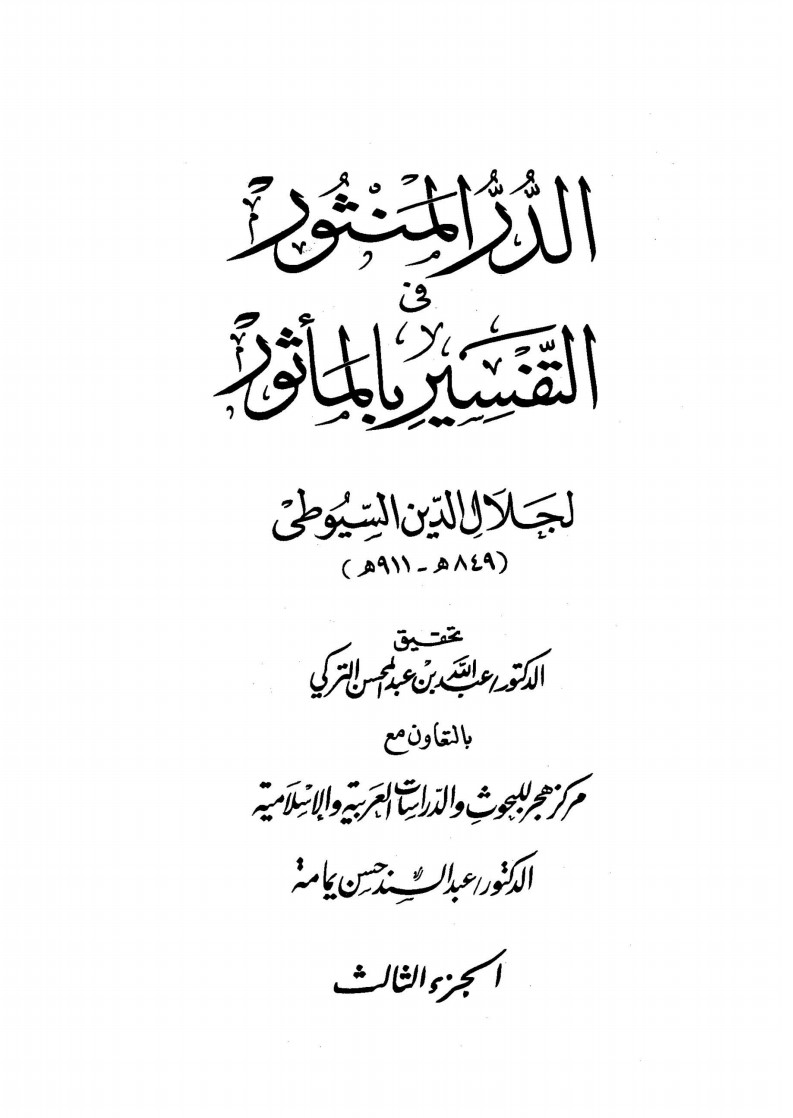 الدُّرُّ المَنْثُور
فى
التَّفْسِيرِ بِالمَأثُور
لجَلَالِ الدِّين السِّيُوطىْ
(٨٤٩هـ - ٩١١هـ)
تحقيق
الدكتور/عبد اللَّه بن عبد المحسن التركي
بالتعاون مع
مركز هجر للبحوث والدراسات العربية والإسلامية
الدكتور/عبد السند حسن يمامة
الجزء الثالث